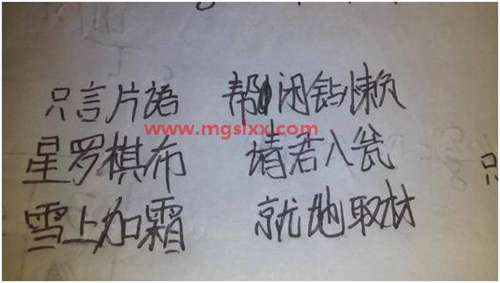 只言片語 帮闲钻懒
www.mgslxx.com
星罗棋布 请君入瓮
只
雪上加霜 就地取材